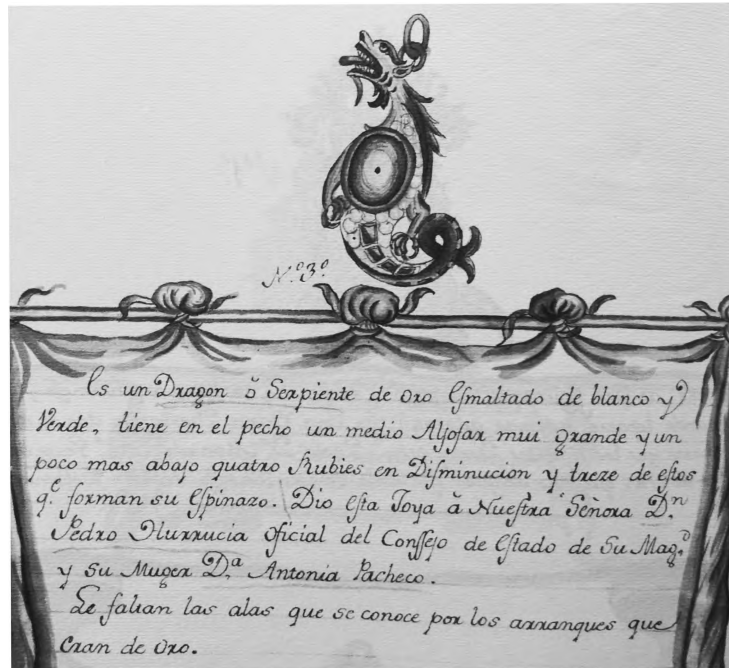 N.º 3º
Es un Dragon ŏ Serpiente de oro Esmaltado de blanco y
Verde, tiene en el pecho un medio Aljofar mui grande y un
poco mas abajo quatro Rubies en Disminucion y treze de estos
q.e forman su Espinazo. Dio esta Joya ă Nuestra Señora D.n
Pedro Ilurrucia Oficial del Conssejo de Estado de Su Mag.d
y su Muger D.a Antonia Pacheco.
Le faltan las alas que se conoce por los arranques que
eran de Oro.